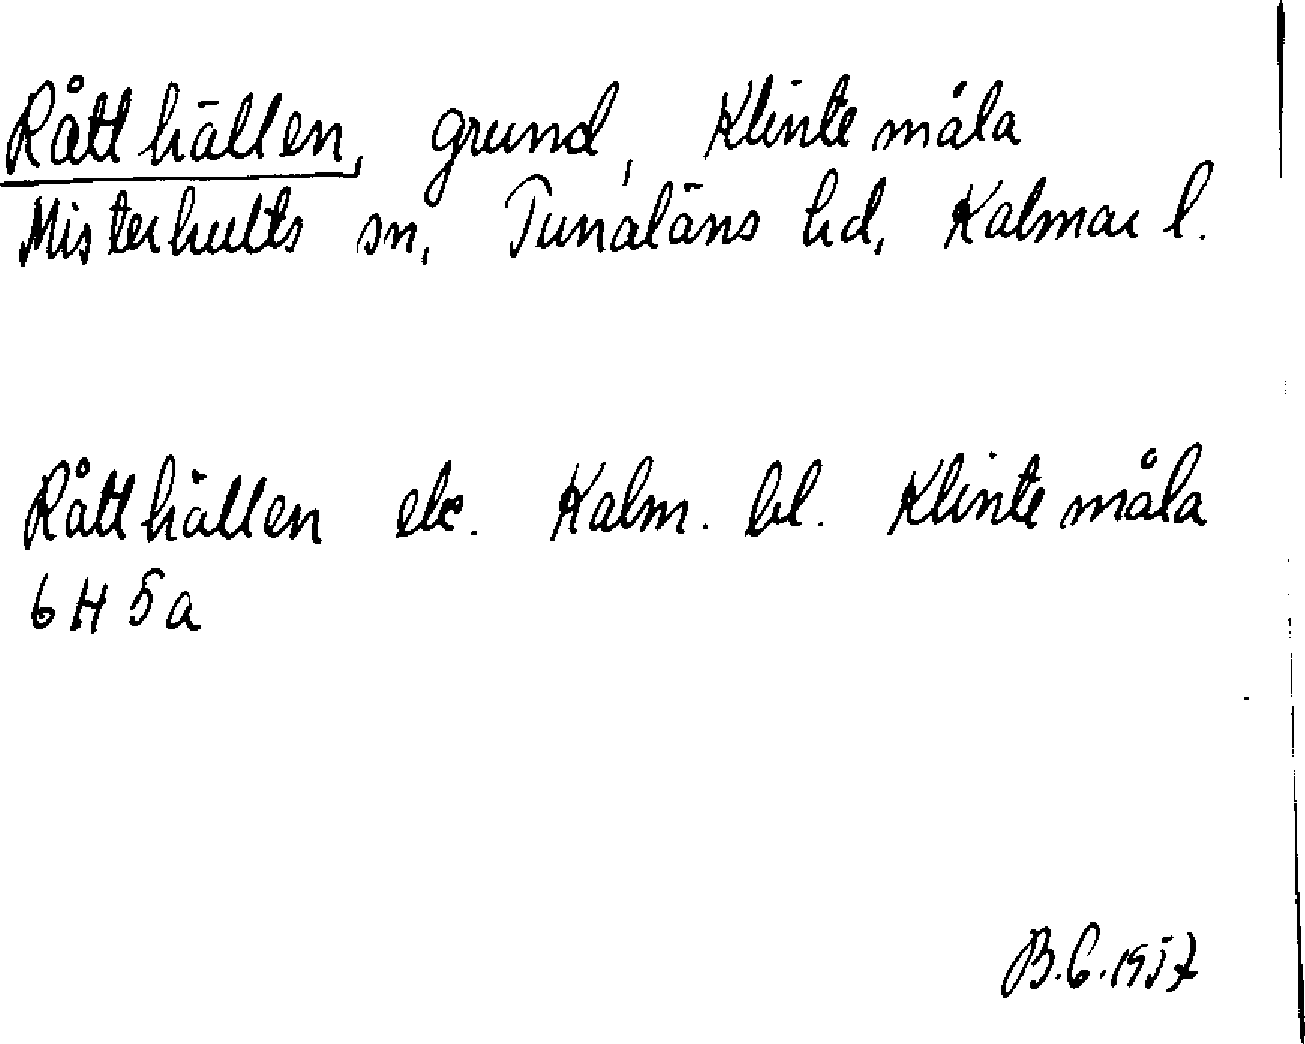 Råtthällen, grund, Klintemåla
Misterhults sn, Tunaläns hd, Kalmar l.
Råtthällen ek. Kalm. bl. Klintemåla
6 H 5 a
B.C.1957